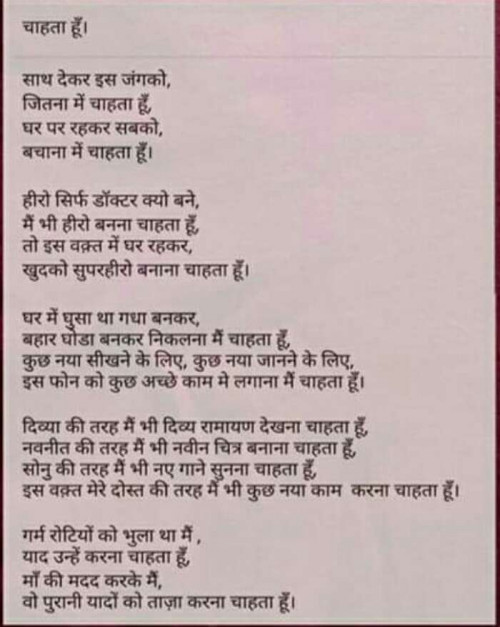 चाहता हूँ।
साथ देकर इस जंगको,
जितना में चाहता हूँ,
घर पर रहकर सबको,
बचाना में चाहता हूँ।
हीरो सिर्फ डॉक्टर क्यो बने,
मैं भी हीरो बनना चाहता हूँ,
तो इस वक़्त में घर रहकर,
खुदको सुपरहीरो बनाना चाहता हूँ।
घर में घुसा था गधा बनकर,
बहार घोडा बनकर निकलना मैं चाहता हूँ,
कुछ नया सीखने के लिए, कुछ नया जानने के लिए,
इस फोन को कुछ अच्छे काम मे लगाना मैं चाहता हूँ।
दिव्या की तरह मैं भी दिव्य रामायण देखना चाहता हूँ,
नवनीत की तरह मैं भी नवीन चित्र बनाना चाहता हूँ,
सोनु की तरह मैं भी नए गाने सुनना चाहता हूँ,
इस वक़्त मेरे दोस्त की तरह मैं भी कुछ नया काम करना चाहता हूँ।
गर्म रोटियों को भुला था मैं ,
याद उन्हें करना चाहता हूँ,
माँ की मदद करके मैं,
वो पुरानी यादों को ताज़ा करना चाहता हूँ।